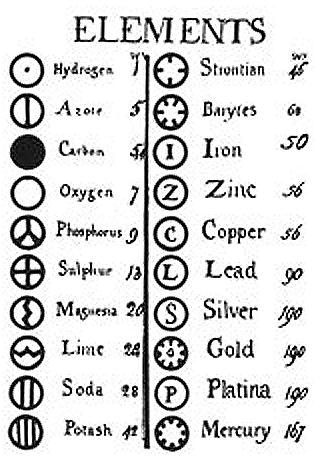 ELEMENTS
Hydrogen 1
Azote 5
Carbon 54
Oxygen 7
Phosphorus 9
Sulphur 13
Magnesia 20
Lime 24
Soda 28
Potash 42
W
Strontian 46
Barytes 68
I Iron 50
Z Zinc 56
C Copper 56
L Lead 90
S Silver 190
Gold 190
P Platina 190
Mercury 167